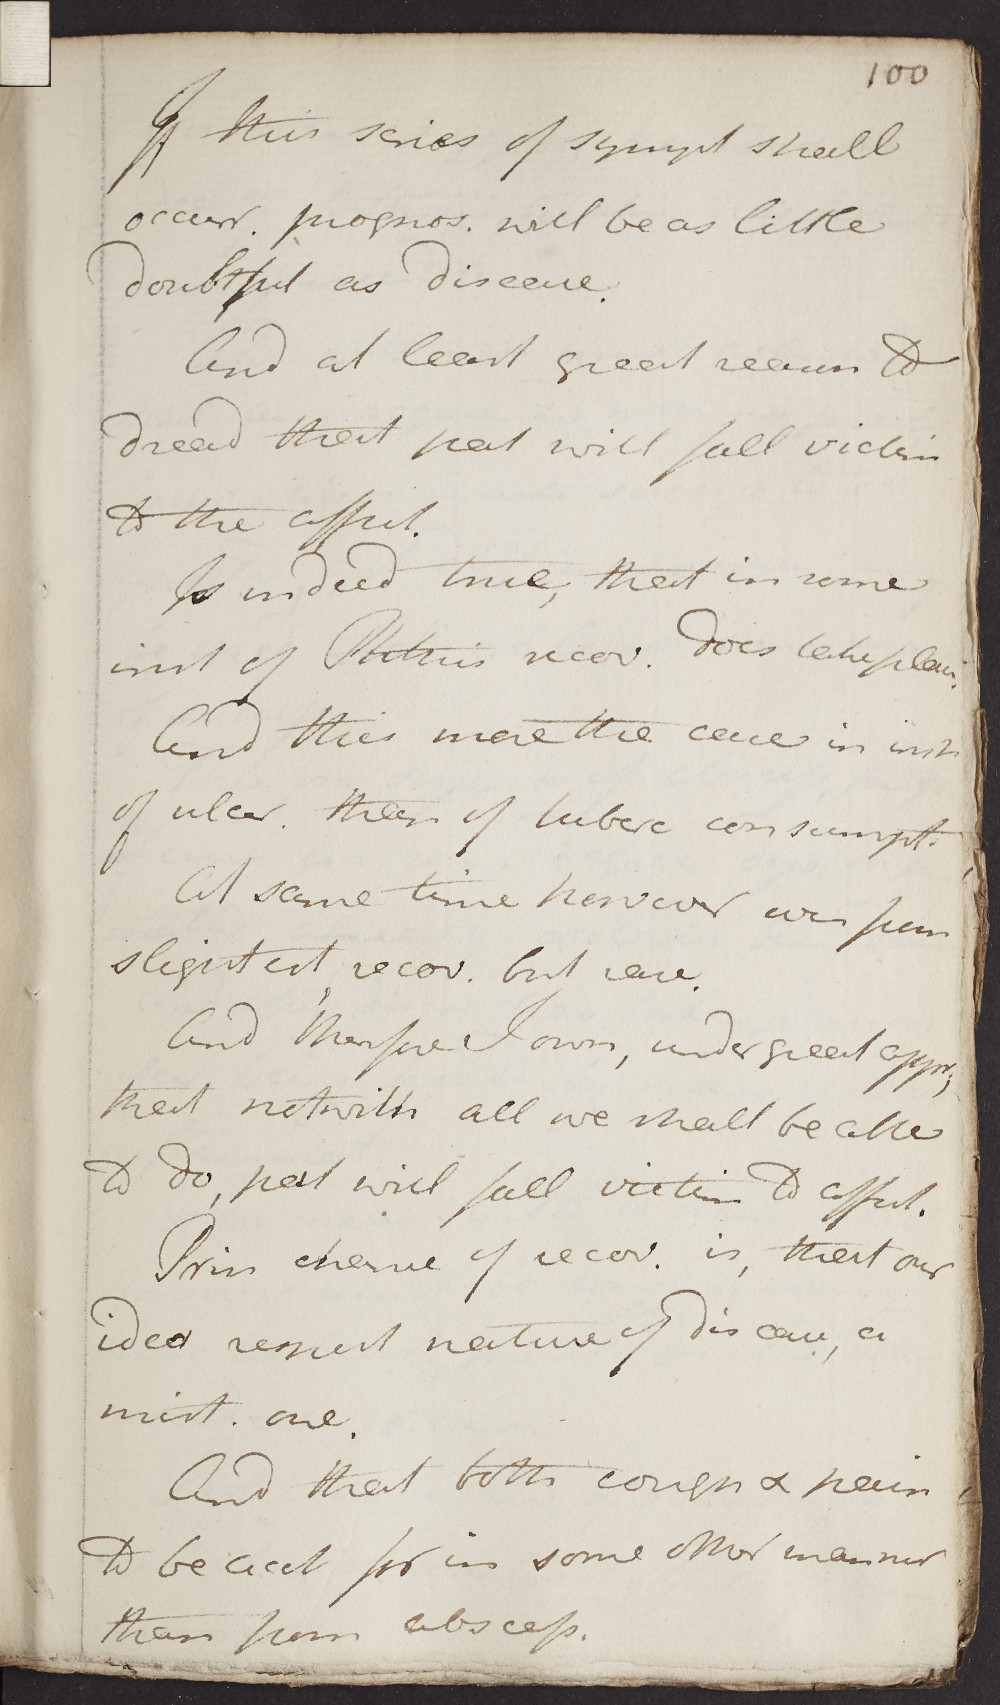 100
If this series of sympt shall
occurr. prognos. will be as little
doubtful as disease.
And at least great reason to
dread that pat will fall victim
to the affect.
Is indeed true, that in some
inst of Phthisis recov. does take place.
And this more the case in inst
of ulcer. than of tuberc consumpt.
At same time however even from
slightest, recov. but rare.
And therefore I own, under great appr;
that notwith all we shall be able
to do, pat will fall victim to affect.
Prin chance of recov. is, that our
idea respect nature of disease, a
mist. one.
And that both cough & pain
to be acct for in some other manner
than from abscess.